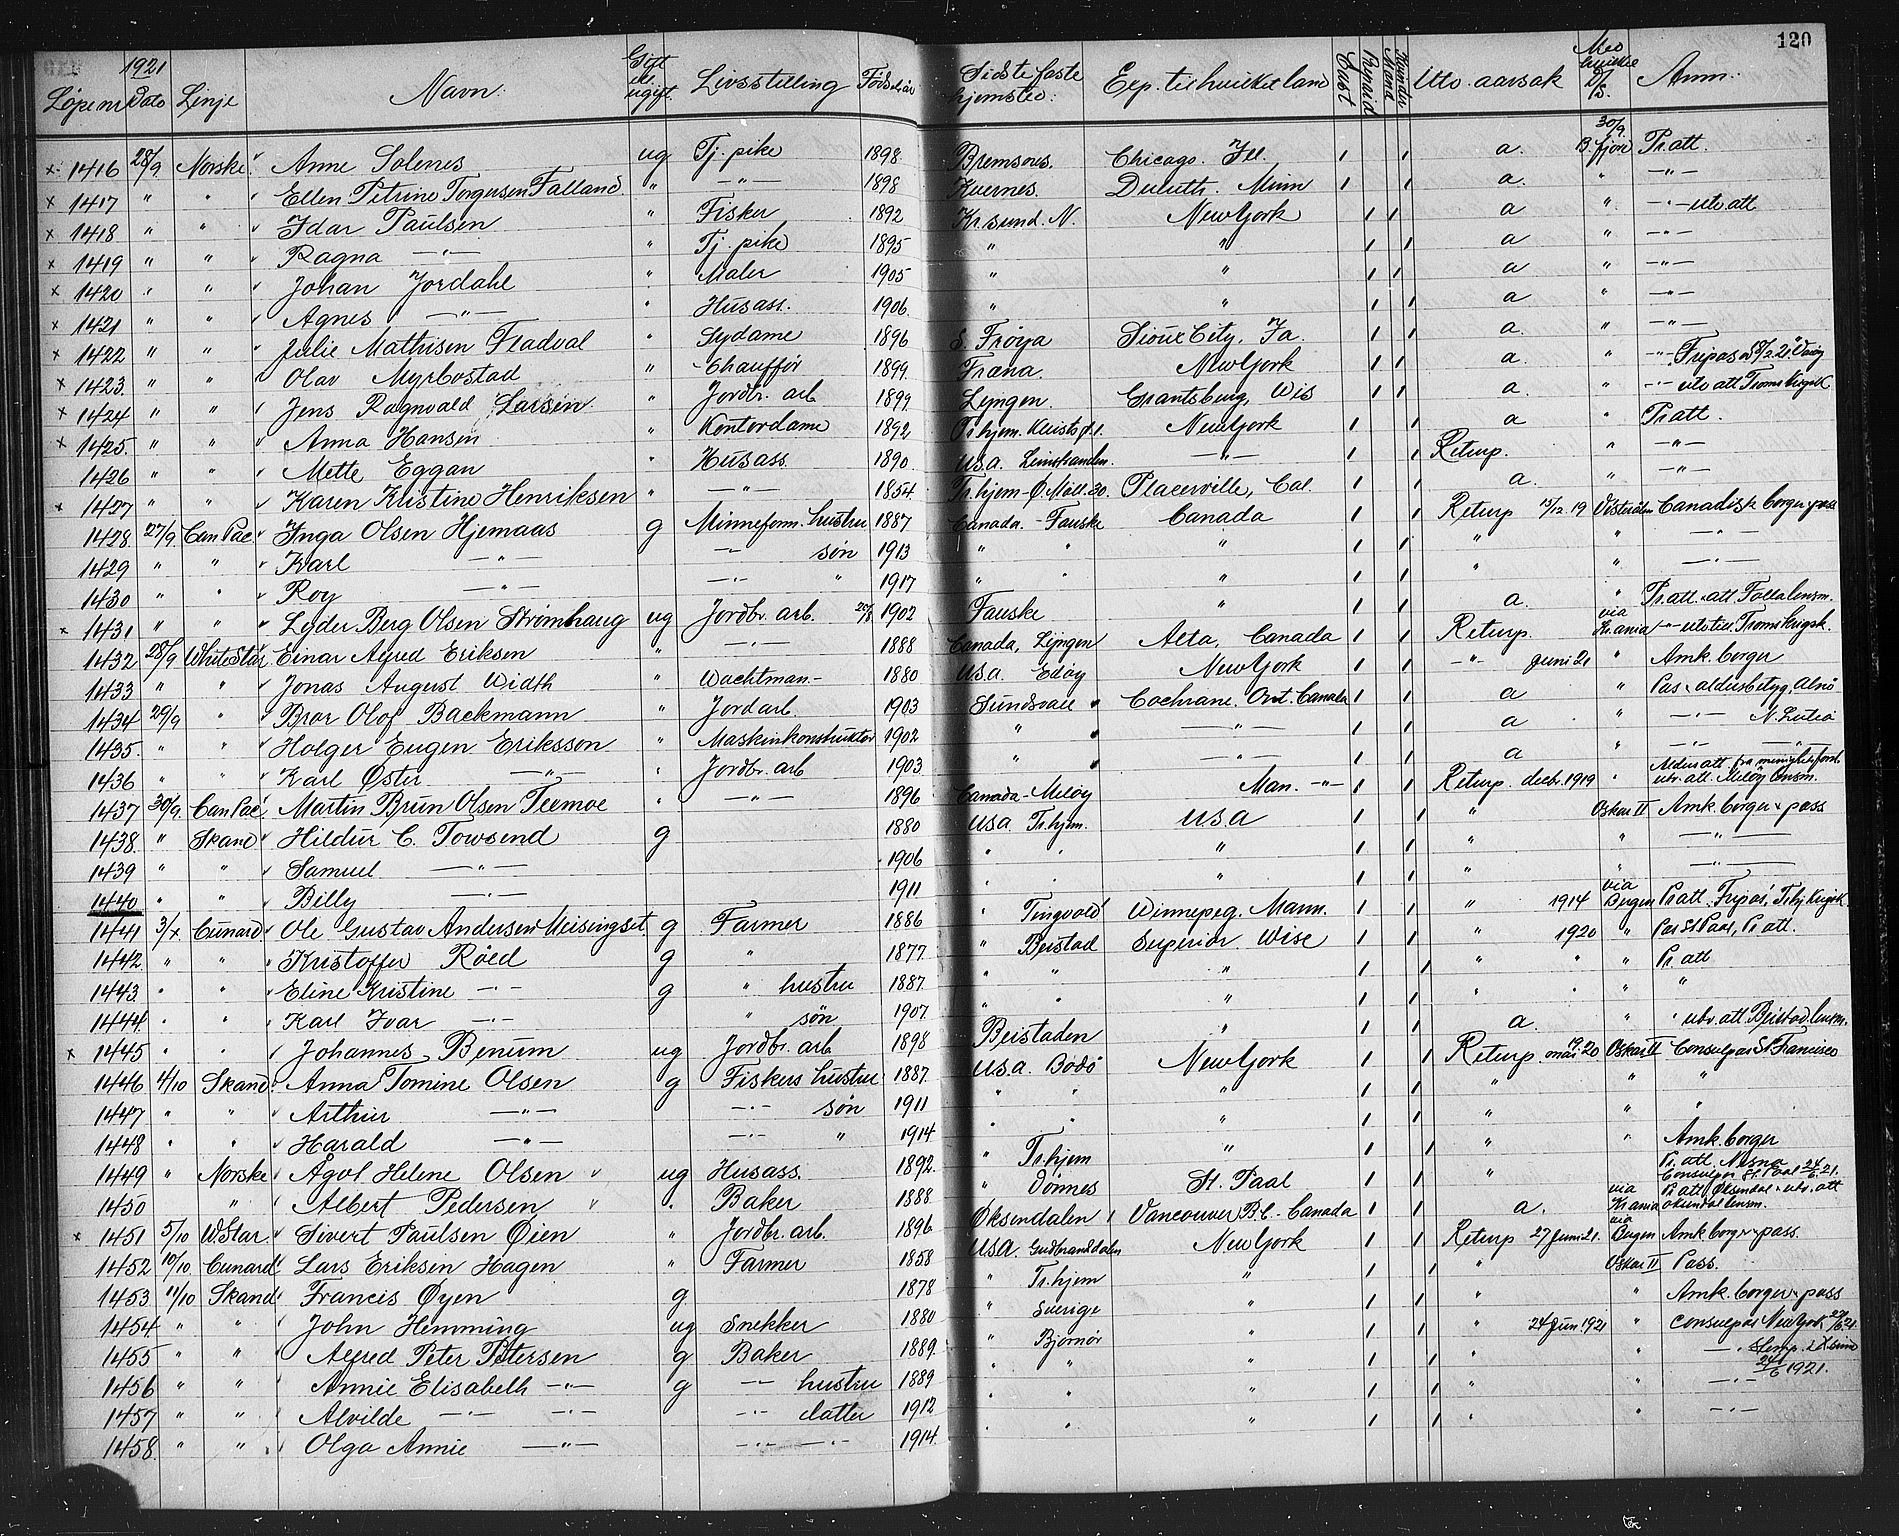 120
1921
Løpenr Dato Linje Navn: Gift el. ugift. Livsstilling Fødselsår Sidste faste hjemsted: Exp. til hvilket land Kontant Prepaid Mand Kvinde Utv. aarsak Med hvilke D/S. Anm:
x 1416 28/9 Norske Anne Solenes ug Tj. pike 1898 Bremsnes. Chicago. Ill. 1 1 a. 30/9 B.fjord Pr att.
x 1417 " " Ellen Petrine Torgersen Falland " —"— 1898 Kvernes. Duluth. Minn 1 1 a. " —"—
x 1418 " " Idar Paulsen " Fisker 1892 Kr.sund. N. New York 1 1 a " —"— utv. att
x 1419 " " Ragna —"— " Tj. pike 1895 " " 1 1 a " —"—
x 1420 " " Johan Jordahl " Maler 1905 " " 1 1 a " —"—
x 1421 " " Agnes —"— " Husass. 1906 " " 1 1 a " —"—
x 1422 " " Julie Mathisen Fladval " Sydame 1896 S. Frøya Sioux City, Ia. 1 1 a. " —"—
x 1423 " " Olav Myrbostad " Chauffør 1899 Fræna. New York 1 1 a. " —"— Fripas
x 1424 " " Jens Ragnvald Larsen " Jordbr. arb 1899 Lyngen. Grantsburg, Wis 1 1 a. " —"— utv att Troms Krigsk
x 1425. " " Anna Hansen " Kontordame 1892 Tr.hjem. New York 1 1 a " Pr att.
1426 " " Mette Eggan " Husass. 1890 U.S.a. Leinstranden. —"— 1 1 Returp. " —"—
x 1427 " " Karen Kristine Henriksen " —"— 1854 Tr.hjem - Ø Møll. 30. Placerville, Cal. 1 1 a. " —"—
1428 27/9 Can Pac. Inga Olsen Hjemaas g Mineform. hustru 1887 Canada. - Fauske Canada 1 1 Returp 15/12 19 Vesterålen Canadisk borger pass
1429 " " Karl —"— —"— søn 1913 " " " 1 1 " " —"—
1430 " " Roy —"— —"— " 1917 " " " 1 1 " " —"—
x 1431 " " Lyder Berg Olsen Strømhaug ug Jordbr. arb. 20/8 1902 Fauske " 1 1 a. " Pr. att. att Folda lensm.
1432 28/9 White Star Einar Alfred Eriksen " —"— 1888 Canada, Lyngen Alta, Canada 1 1 Returp. via Kr.ania —"— utv til. Troms Krigsk.
1433 " " Jonas August Width " Wachtman — 1880 U.S.a. Edøy New York 1 1 —"— Juni 21 " Amk. borger
1434 29/9 " Bror Olof Backmann " Jordarb. 1903 Sundsvall " Cochrane. Ont. Canada 1 1 a " Pas & aldersbetyg. Alnö
1435. " " Holger Eugen Eriksson " Maskinkonstruktør 1902 " " —"— 1 1 a " —"— N. Luleå
1436 " " Karl Øster —"— " Jordbr. arb 1903 " " —"— 1 1 a " —"— —"—
1437 30/9 Can Pac. Martin Brun Olsen Teemoe " —"— 1896 Canada - Meløy Man. —"— 1 1 Returp. decbr. 1919 " utv. att. Meløy lensm.
1438. " Skand Hildur C. Towsend g 1880 U.S.a. Tr.hjem. U.S.a 1 1 " Oskar II Amk. borger & pass
1439 " " Samuel —"— 1906 " " " 1 1 " " —"—
1440 " " Billy —"— 1911 " " " 1 1 " " —"—
1441 3/x Cunard Ole Gustav Andersen Meisingset g Farmer 1886 " Tingvold Winnepeg. Mann. 1 1 " 1914 via Bergen Pr att. Fripas, Trhj Krigsk.
1442 " " Kristoffer Røed g " 1877 " Beistad Superior Wisc 1 1 " 1920 " Pas St Paal, Pr att.
1443 " " Eline Kristine —"— g " hustru 1887 " " " 1 1 " " " Pr att
1444 " " Karl Ivar —"— " søn 1907 " " " 1 1 " " " "
x 1445 " " Johannes Benum ug Jordbr. arb 1898 Beistaden " 1 1 a. " " utv. att. Beistad lensm.
1446 4/10 Skand. Anna Tomine Olsen g Fiskers hustru 1887 U.S.a. Bodø New York 1 1 Returp. mai 19. 20 Oskar II Consulpas St Francisco
1447 " " Arthur —"— —"— søn 1911 " " " 1 1 " " "
1448 " " Harald —"— —"— " 1914 " " " 1 1 " " "
1449 " Norske Ågot Helene Olsen " ug Husass. 1892 " Tr.hjem " 1 1 " " Amk. borger
1450 " Albert Pedersen " " Baker 1888 " Dønnes St. Paal 1 1 " Pr. att. Nesna Consulpas St. Paal 24/6 21.
x 1451 5/10 W. Star. Sivert Paulsen Øien " Jordbr. arb. 1896 Øksendalen Vancouver B.C. - Canada 1 1 a. via Kr.ania Pr att Øksendal & utv. att
1452 10/10 Cunard Lars Eriksen Hagen " Farmer 1858 U.S.a. Gudbranddalen New York 1 1 Returp 27 Juni 21. via Bergen Amk borger & pass.
1453 11/10 Skand Francis Øyen g 1878 " Tr.hjem " 1 1 " Oskar II Pass.
1454 " " John Hemming ug Snekker 1880 " Sverige " 1 1 " " Amk. borger & pass
1455 " " Alfred Peter Petersen g Baker 1889 " Bjørnør " 1 1 " 24 Jun 1921 " Consulpas New York
1456 " " Annie Elisabeth —"— g —"— hustru 1889 " " " 1 1 " " —"— Stemp. 24/6 1921.
1457 " " Alvilde —"— —"— —"— datter 1912 " " " 1 1 " " —"—
1458 " " Olga Annie —"— —"— —"— 1914 " " " 1 1 " " —"—